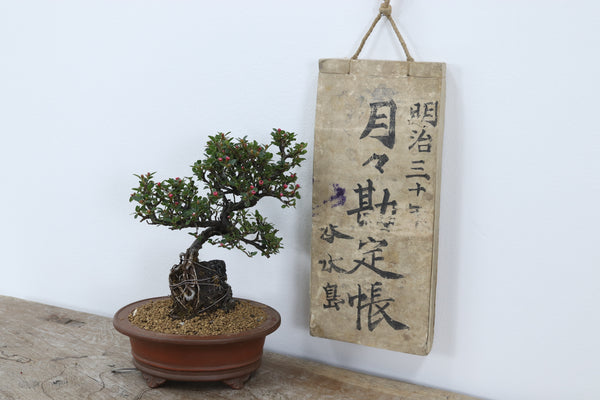 明治三十年
月々勘定帳
水島